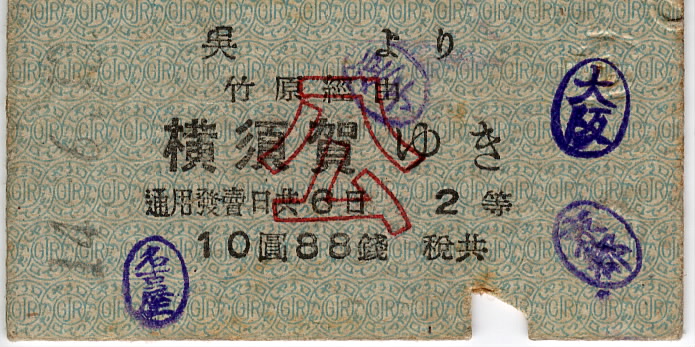 吳 より
竹原經由
横須賀ゆき
通用發賣日共6日 2等
10圓88錢 稅共
公
大阪
名古屋